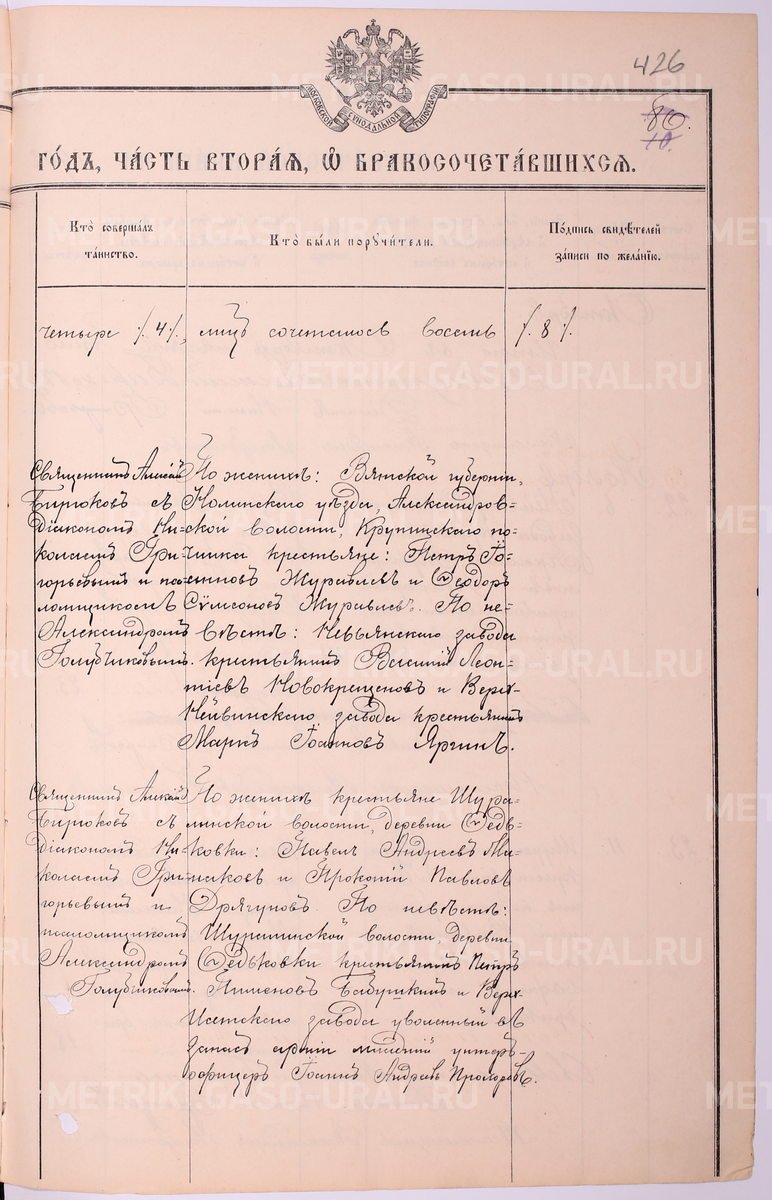 426
80.
10.
МОСКОВСКОЙ СѴНОДАЛЬНОЙ ТИПОГРАФІИ
ГО́ДЪ, ЧА́СТЬ ВТОРА́Ѧ, Ѽ БРАКОСОЧЕТА́ВШИХСѦ.
Кто̀ соверша́лъ
та́инство.
Кто̀ бы́ли порꙋчи́тели.
По́дпись свидѣ́телей
за́писи по жела́нїю.
четыре /.4/., лицъ сочеталось восемь /.8/.
Священникъ Алексій
Бирюковъ съ
діакономъ Ни-
колаемъ Гри-
горьевымъ и пса-
ломщикомъ
Александромъ
Голубчиковымъ.
По женихѣ: Вятской губерніи,
Нолинскаго уѣзда, Александров-
ской волости, Крупинскаго по-
чинка крестьяне: Петръ Іо-
анновъ Журавлевъ и Ѳеодоръ
Сѵмеоновъ Журавлевъ. По не-
вѣстѣ: Невьянскаго завода
крестьянинъ Василій Леон-
тіевъ Новокрещеновъ и Верх-
Нейвинскаго завода крестьянинъ
Маркъ Іоанновъ Яргинъ.
Священникъ Алексій
Бирюковъ съ
діакономъ Ни-
колаемъ Гри-
горьевымъ и
псаломщикомъ
Александромъ
Голубчиковымъ.
По женихѣ крестьяне Шура-
линской волости, деревни Ѳедь-
ковки: Павелъ Андреевъ Ми-
наковъ и Прокопій Павловъ
Дрягуновъ. По невѣстѣ:
Шуралинской волости, деревни
Ѳедьковки крестьянинъ Петръ
Пименовъ Бабушкинъ и Верх-
Исетскаго завода уволенный въ
запасъ арміи младшій унтеръ-
офицеръ Іоаннъ Андреевъ Прохоровъ.
METRIKI.GASO-URAL.RU